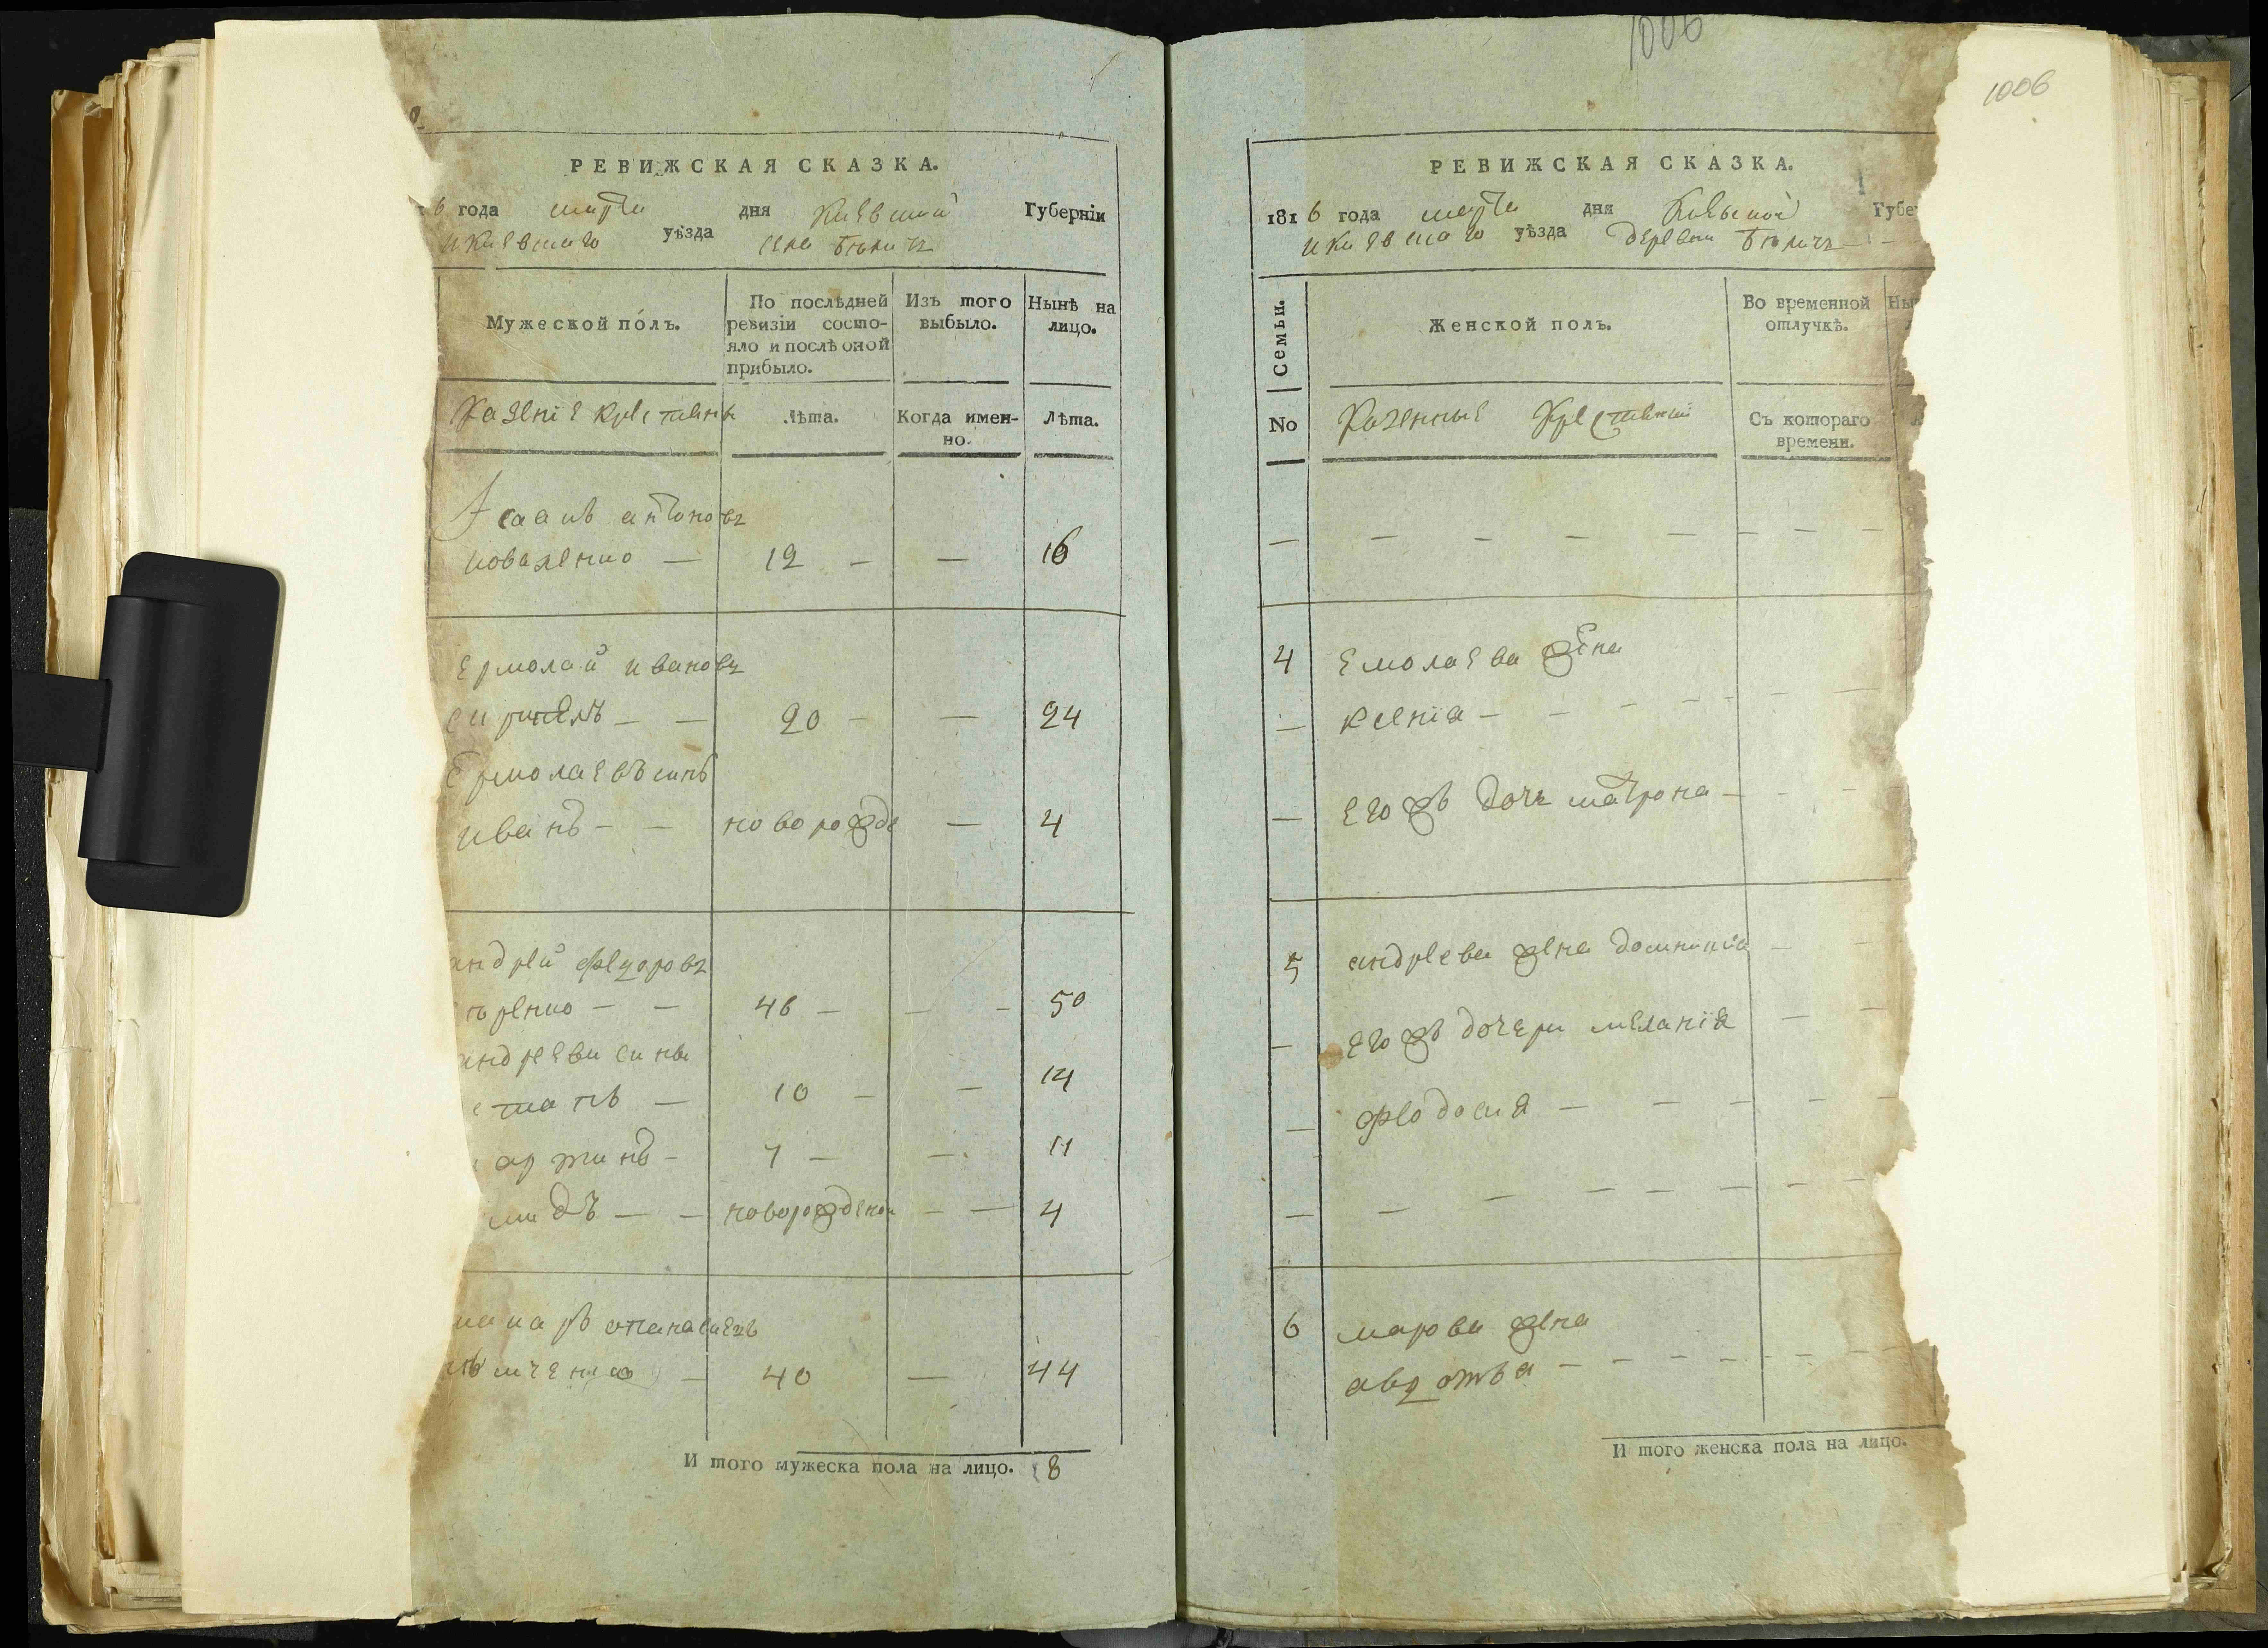 1006
1006
РЕВИЖСКАЯ СКАЗКА.
6 года марта дня Киевской Губерніи
и Киевскаго уѣзда села Бѣличъ
Мужеской полъ.
По послѣдней ревизіи состо-
яло и послѣ оной
прибыло.
Изъ того
выбыло.
Нынѣ на
лицо.
Казеніе крестьяны
Лѣта.
Когда имен-
но.
Лѣта.
Исаакъ антоновъ
коваленко — 12 — — 16
Ермолай ивановъ
— — 20 — — 24
Ермолаевъ синъ
иванъ — — новорожде — 4
андрей федоровъ
— — 46 — — — 50
андрееви сины
степанъ — 10 — — 14
мартинъ — 7 — — 11
— — новорожденой — — 4
макаръ
— 40 — 44
И того мужеска пола на лицо. 8
РЕВИЖСКАЯ СКАЗКА.
1816 года марта дня Киевской Губе
и Киевскаго уѣзда деревни Бѣличъ — —
Семьи.
Женской полъ.
Во временной
отлучкѣ.
Ны
No
Казенные Крестьянки
Съ котораго
времени.
— — — — — — — — —
4 Емолаева жена
— ксенія — — — — — —
— Его жъ дочь матрона — — —
5 андреева жена домникия — —
— Его жъ дочери меланія — —
— феодосия — — — — — —
— — — — — — — —
6 марова жена
авдотья — — — — — — — —
И того женска пола на лицо.